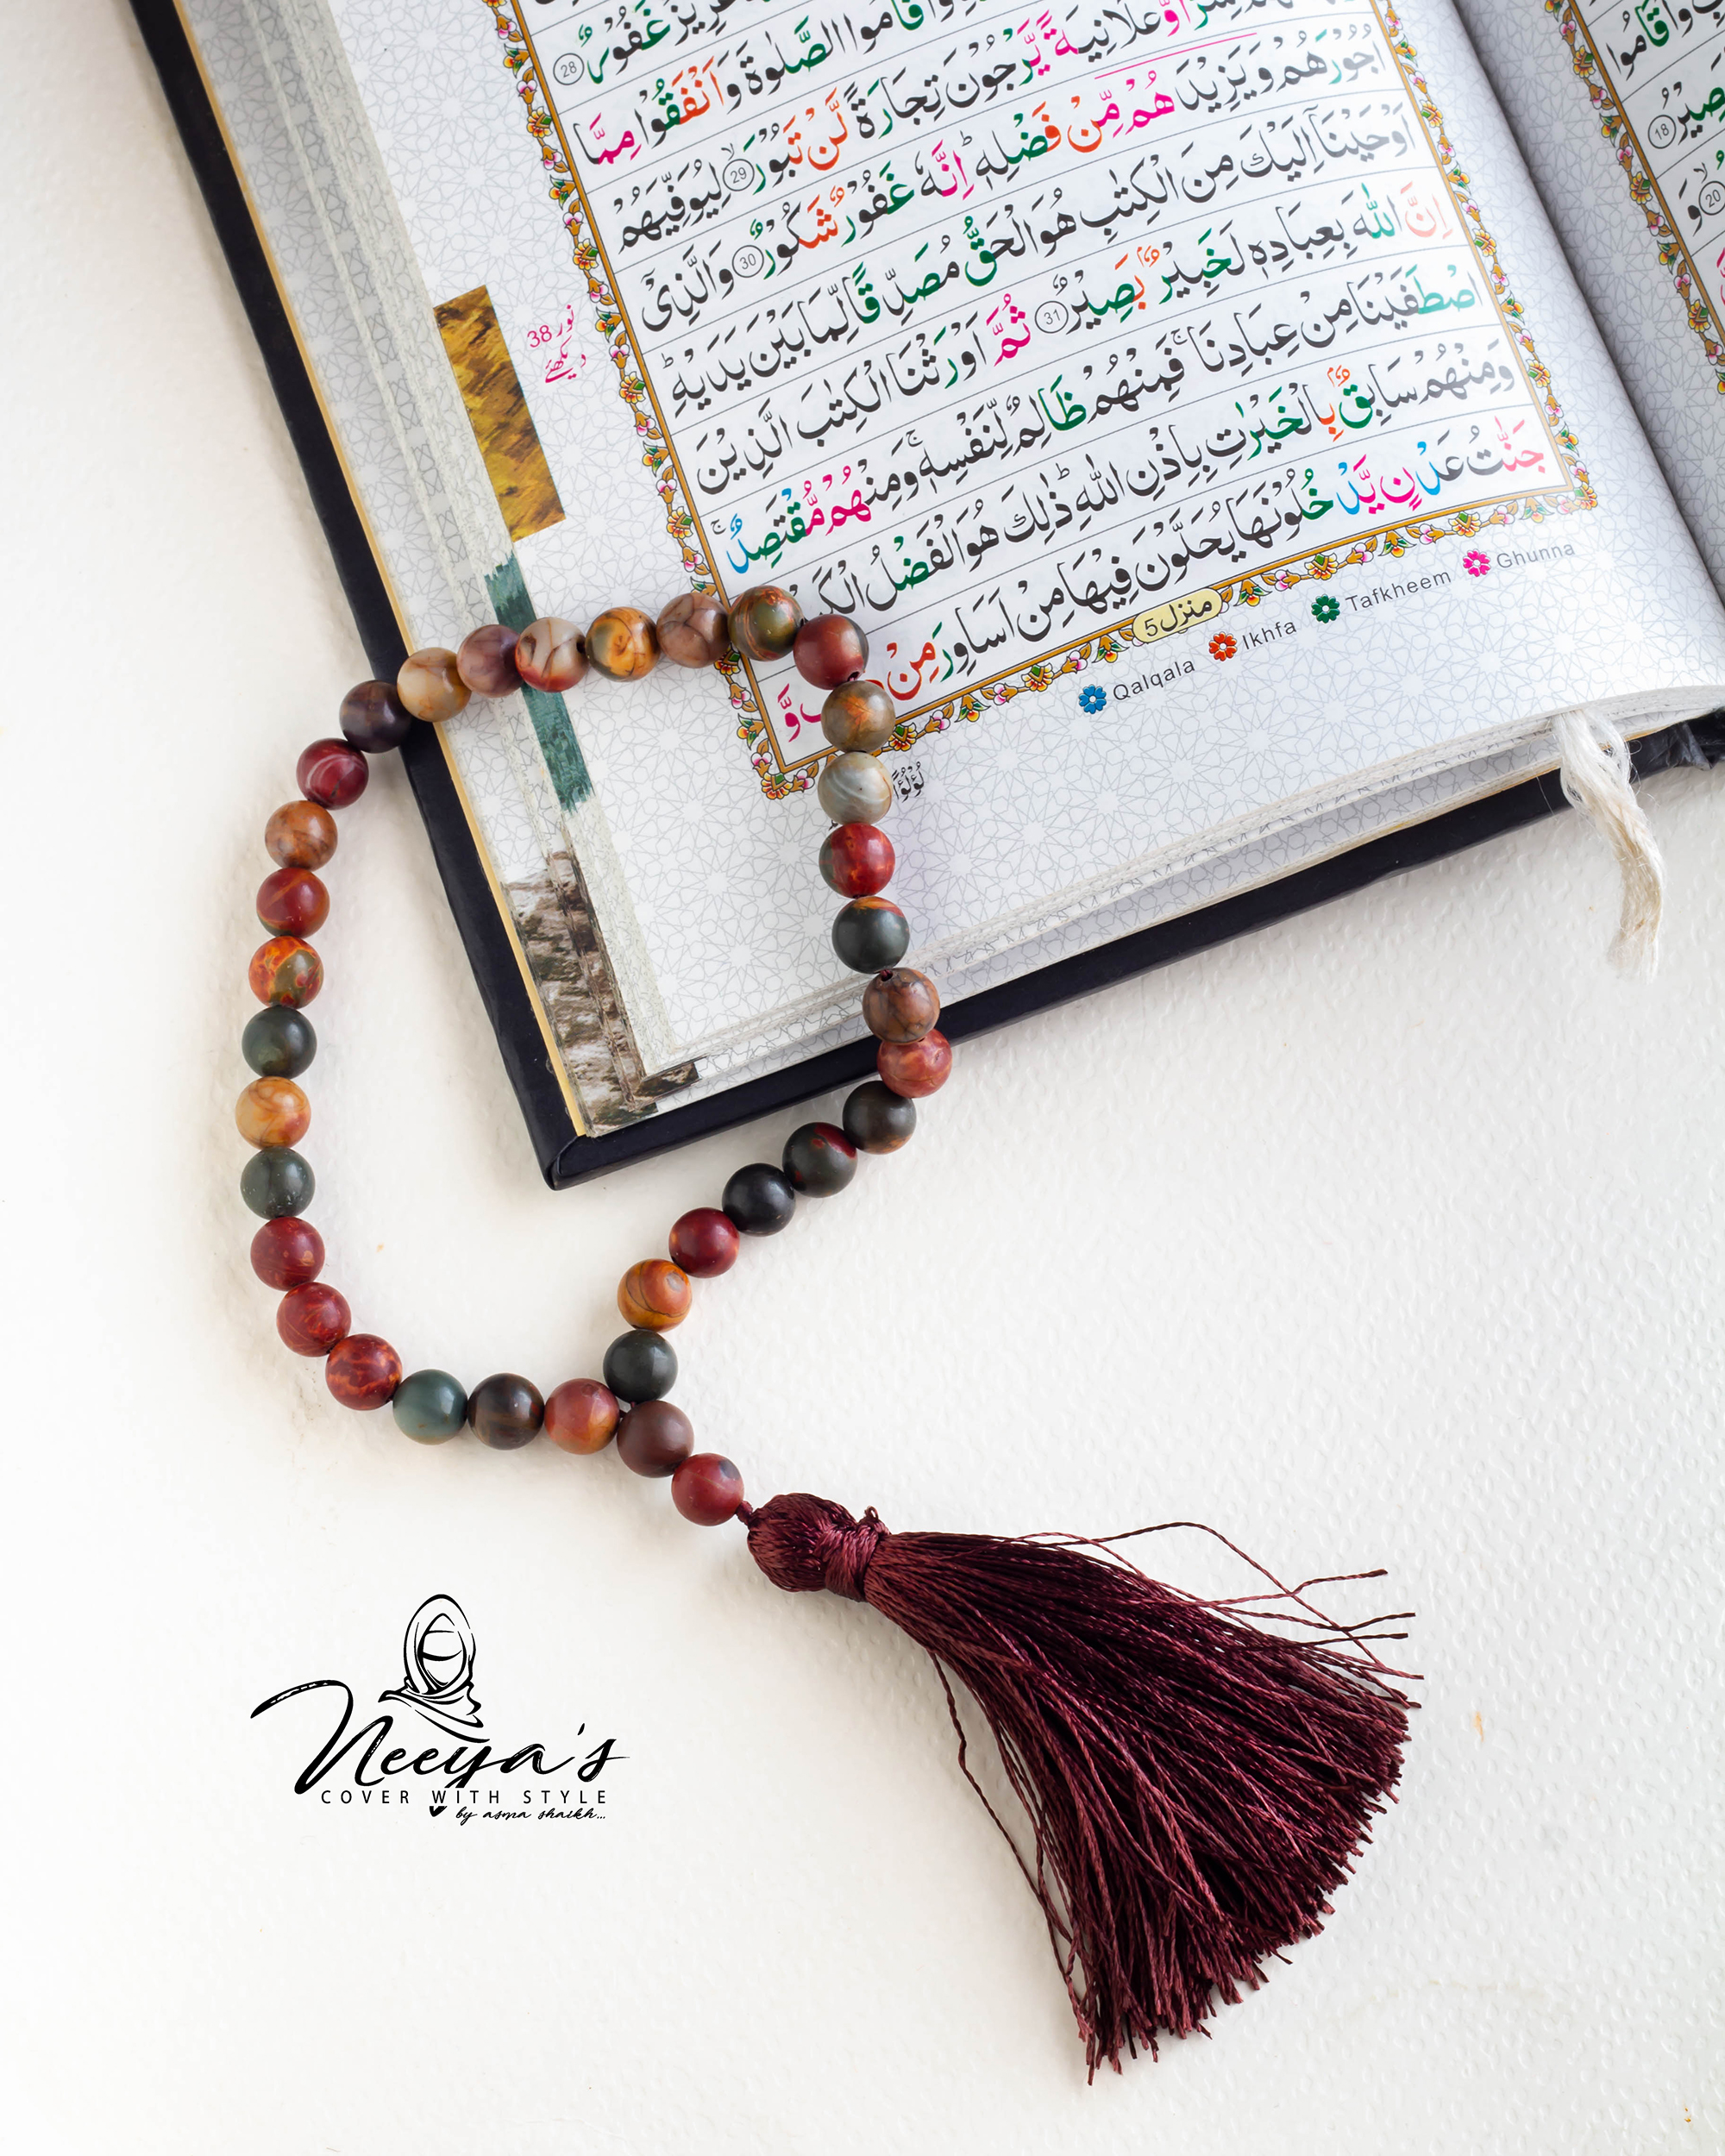 غَفُوْرٌ 28
قَامُوا الصَّلٰوةَ وَاَنْفَقُوْا مِمَّا
وَّعَلَانِيَةً يَّرْجُوْنَ تِجَارَةً لَّنْ تَبُوْرَ 29 لِيُوَفِّيَهُمْ
اُجُوْرَهُمْ وَيَزِيْدَهُمْ مِّنْ فَضْلِهٖ ؕ اِنَّهٗ غَفُوْرٌ شَكُوْرٌ 30 وَالَّذِيْۤ
اَوْحَيْنَاۤ اِلَيْكَ مِنَ الْكِتٰبِ هُوَ الْحَقُّ مُصَدِّقًا لِّمَا بَيْنَ يَدَيْهِ ؕ
اِنَّ اللّٰهَ بِعِبَادِهٖ لَخَبِيْرٌۢ بَصِيْرٌ 31 ثُمَّ اَوْرَثْنَا الْكِتٰبَ الَّذِيْنَ
اصْطَفَيْنَا مِنْ عِبَادِنَا ۚ فَمِنْهُمْ ظَالِمٌ لِّنَفْسِهٖ ۚ وَمِنْهُمْ مُّقْتَصِدٌ ۚ
وَمِنْهُمْ سَابِقٌۢ بِالْخَيْرٰتِ بِاِذْنِ اللّٰهِ ؕ ذٰلِكَ هُوَ الْفَضْلُ
جَنّٰتُ عَدْنٍ يَّدْخُلُوْنَهَا يُحَلَّوْنَ فِيْهَا مِنْ اَسَاوِرَ مِنْ وَّ
لُؤْلُؤًا
منزل 5
Qalqala Ikhfa Tafkheem Ghunna
نور 38
دیکھئے
قَامُوا
صِيْرُ 18
20 وَ
Neeya's
COVER WITH STYLE
by asma shaikh...